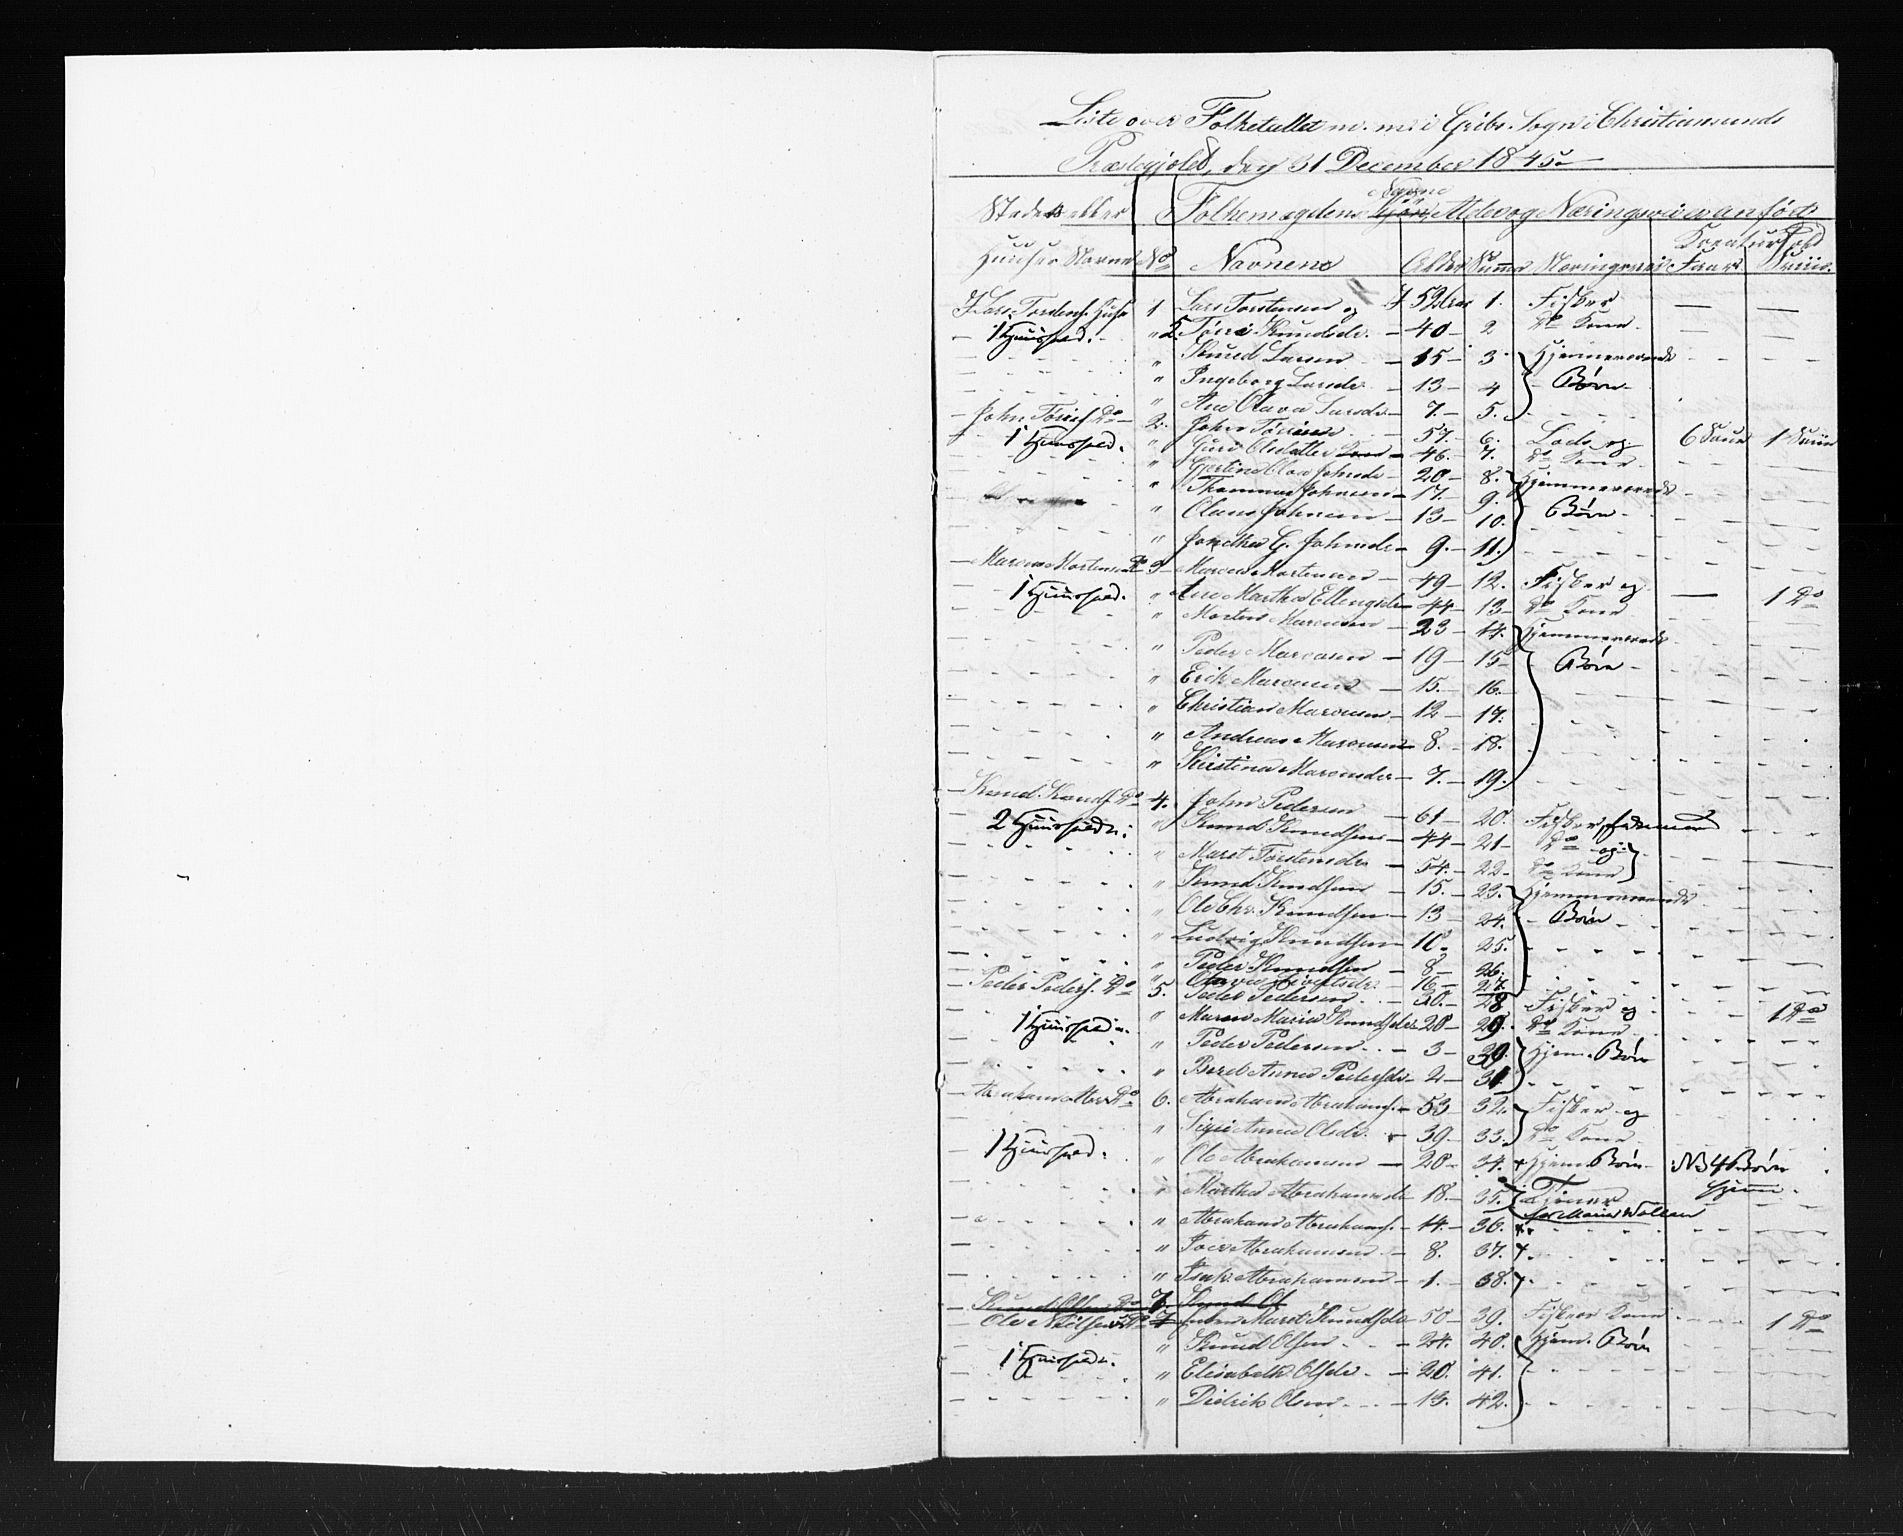 Liste over Folketallet m. m. i Grib Sogn i Christiansunds
Præstegjeld, den 31 December 1845.
Stedets eller Folkemægdens Navne Kjøn, Alder og Næringsveie anførte
Huuses Navne No Navnene Alder Summa Næringsvei Kreaturhold Faar Sviin
Lars Torstens. Huus 1 Lars Torstensen og 52 Aar 1. Fisker — —
1 Huushold. " Knudsdr. — 40 — 2 Do Kone —
" Knud Larsen — 15 — 3 Hjemmeværende
" Ingeborg Larsdr. — 13 — 4 Børn
" Ane Olava Larsdr — 7. — 5.
John Do 2. John 57. — 6. Lods og 6 Sviin
1 Huushold. " Guri Olsdatter Kone — 46 — 7. Do Kone
" Johnsdr — 20 — 8. Hjemmeværende
" Thommas Johnsen — 17. — 9.
" Olaus Johnsen — 13 — 10. Børn
" G. Johnsdr — 9. — 11.
Marcus Mortensen Do 3 Marcus Mortensen — 49 — 12. Fisker og
1 Huushold. " Ane Martha Ellingsdr — 44 — 13 — Do Kone — 1 Do
" Morten Marcusen — 23 — 14. Hjemmeværende
" Peder Marcusen — 19 — 15 Børn
" Erik Marcusen — 15. — 16.
" Christian Marcusen — 12 — 17.
" Andreas Marcusen — 8. — 18.
" Kirstina Marcusdr — 7. — 19.
Knud Knuds. Do 4. John Pedersen — 61 — 20. Fisker,
2 Huushold: " Knud Knudsen — 44 — 21 — Do og
" Marit Torstensdr — 54. — 22. Do Kone
" Knud Knudsen — 15. — 23. Hjemmeværende
" Ole Chr. Knudsen — 13 — 24. Børn
" Ludvig Knudsen — 10. 25.
" Peder Knudsen — 8 — 26.
" — 16 — 27.
Peder Peders. Do 5. Peder Pedersen — 30. — 28 Fisker og 1 Do
1 Huushold. " Maren Maria Knudsdr — 28 — 29. Do Kone
" Peder Pedersen — 3 — 30. Hjem. Børn
" Berit Anna Pedersdr — 2 — 31
Abraham Abr. Do 6. Abraham Abrahams. — 53 32. Fisker og
" Anna Olsdr. — 39 — 33. Do Kone
1 Huushold. " Ole Abrahamsen — 20 — 34. + Hjem. Børn NB 4 Børn
" Martha Abrahamsdr 18. — 35. Tjener Hjem.
" Abraham Abrahams. — 14. — 36. +.
" Abrahamsen — 8. — 37. +.
" Isak Abrahamsen — 1. — 38. +.
Knud Olsen Do 7. Knud Ol
Ole Do 7 Marit Knudsdr — 50 — 39. Fiskers Kone 1 Do
" Knud Olsen — 24. — 40. Hjem. Børn
1 Huushold. " Elisabeth Olsdr. — 20. — 41.
" Didrik Olsen — 13. — 42.